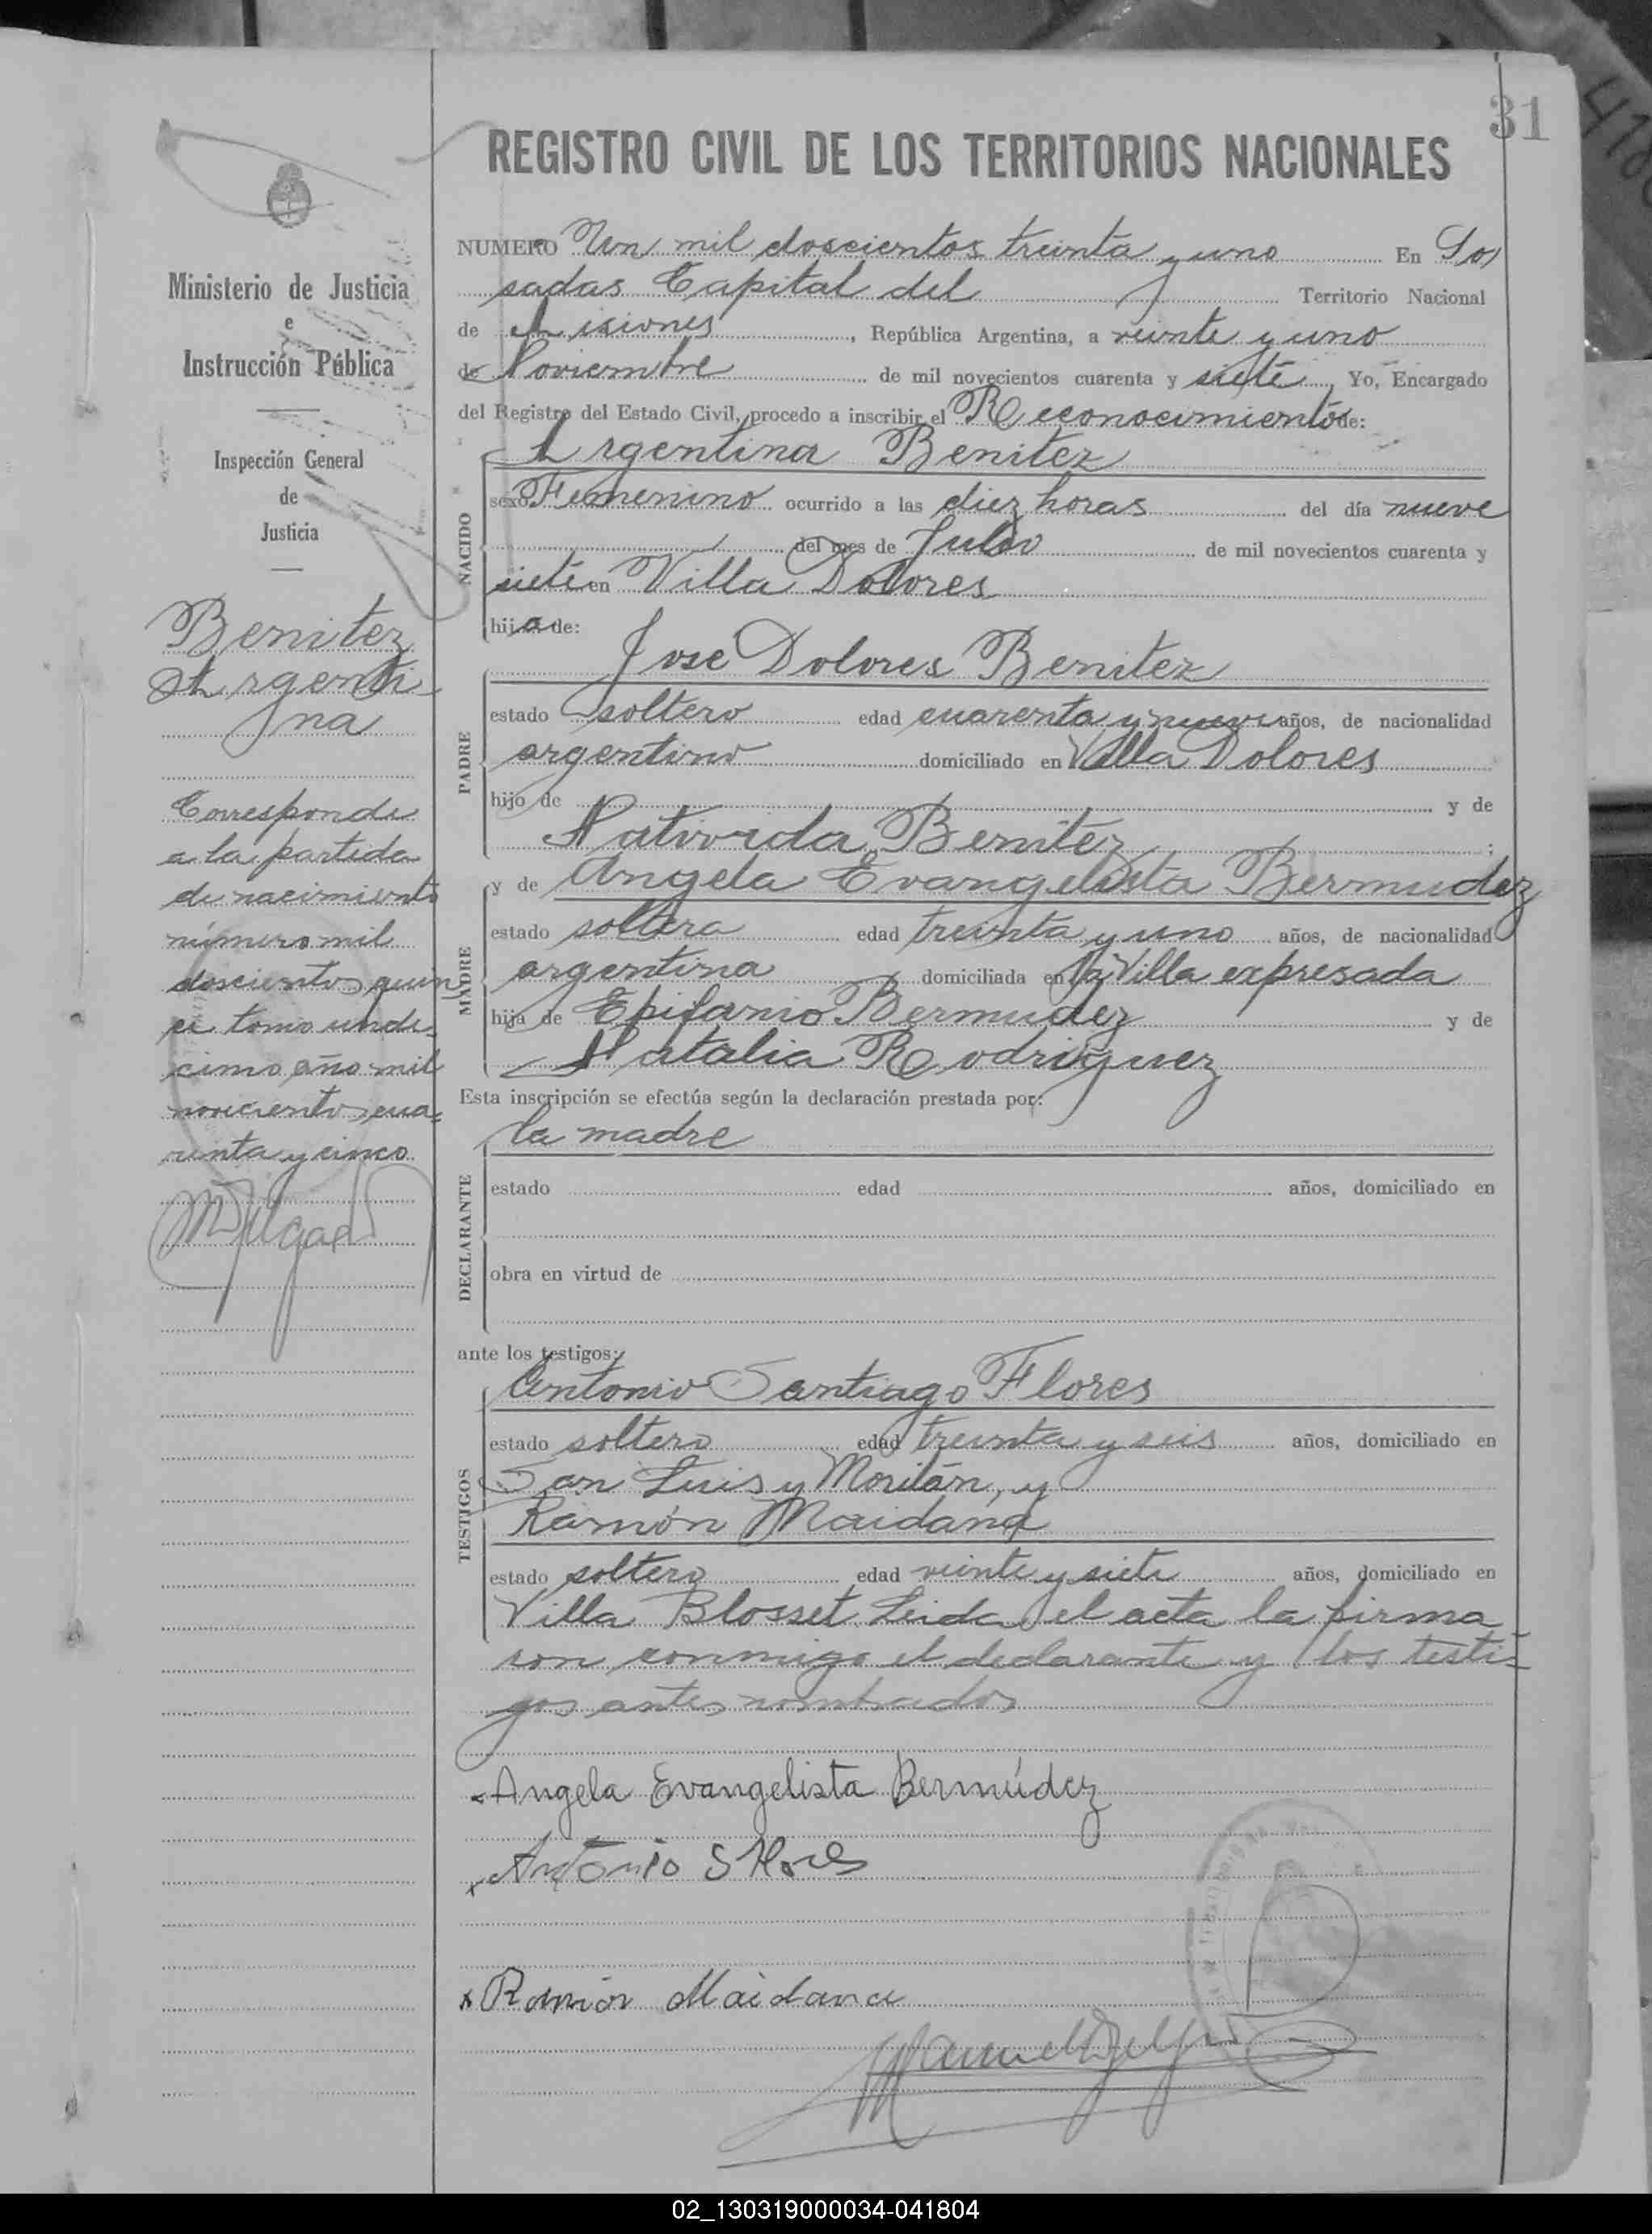 31
REGISTRO CIVIL DE LOS TERRITORIOS NACIONALES
Ministerio de Justicia
e
Instrucción Pública
Inspección General
de
Justicia
Benitez
Argenti-
na
Corresponde
a la partida
de nacimiento
número mil
doscientos quin
ce tomo unde-
cimo año mil
noveciento cua=
renta y cinco
NUMERO Un mil doscientos treinta y uno En Po
sadas Capital del Territorio Nacional
de Misiones, República Argentina, a veinte y uno
de Noviembre de mil novecientos cuarenta y siete, Yo, Encargado
del Registro del Estado Civil, procedo a inscribir el Reconocimiento de:
NACIDO
Argentina Benitez
sexo Femenino ocurrido a las diez horas del día nueve
del mes de Julio de mil novecientos cuarenta y
siete en Villa Dolores
hija de:
PADRE
Jose Dolores Benitez
estado soltero edad cuarenta y nueve años, de nacionalidad
argentino domiciliado en Villa Dolores
hijo de y de
Nativida Benitez;
MADRE
y de Angela Evangelista Bermudez
estado soltera edad treinta y uno años, de nacionalidad
argentina domiciliada en la Villa expresada
hija de Epifanio Bermudez y de
Natalia Rodriguez
Esta inscripción se efectúa según la declaración prestada por:
DECLARANTE
la madre
estado edad años, domiciliado en
obra en virtud de
ante los testigos:
TESTIGOS
Antonio Santiago Flores
estado soltero edad treinta y seis años, domiciliado en
San Luis y Moritán, y
Ramón Maidana
estado soltero edad veinte y siete años, domiciliado en
Villa Blosset Leida el acta la firma
con conmigo el declarante y los testi=
gos antes nombrados
Angela Evangelista Bermúdez
Antonio S Flores
x Ramón Maidana
02_130319000034-041804